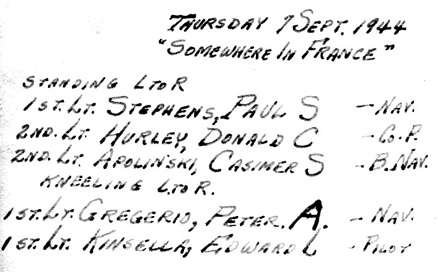 THURSDAY 7 SEPT. 1944
"SOMEWHERE IN FRANCE"
STANDING L TO R
1ST. LT. STEPHENS, PAUL S - NAV.
2ND. LT. HURLEY, DONALD C - CO-P.
2ND. LT. APOLINSKI, CASIMER S - B. NAV.
KNEELING L TO R.
1ST. LT. GREGERIO, PETER. A. - NAV.
1ST. LT. KINSELLA, EDWARD L - PILOT